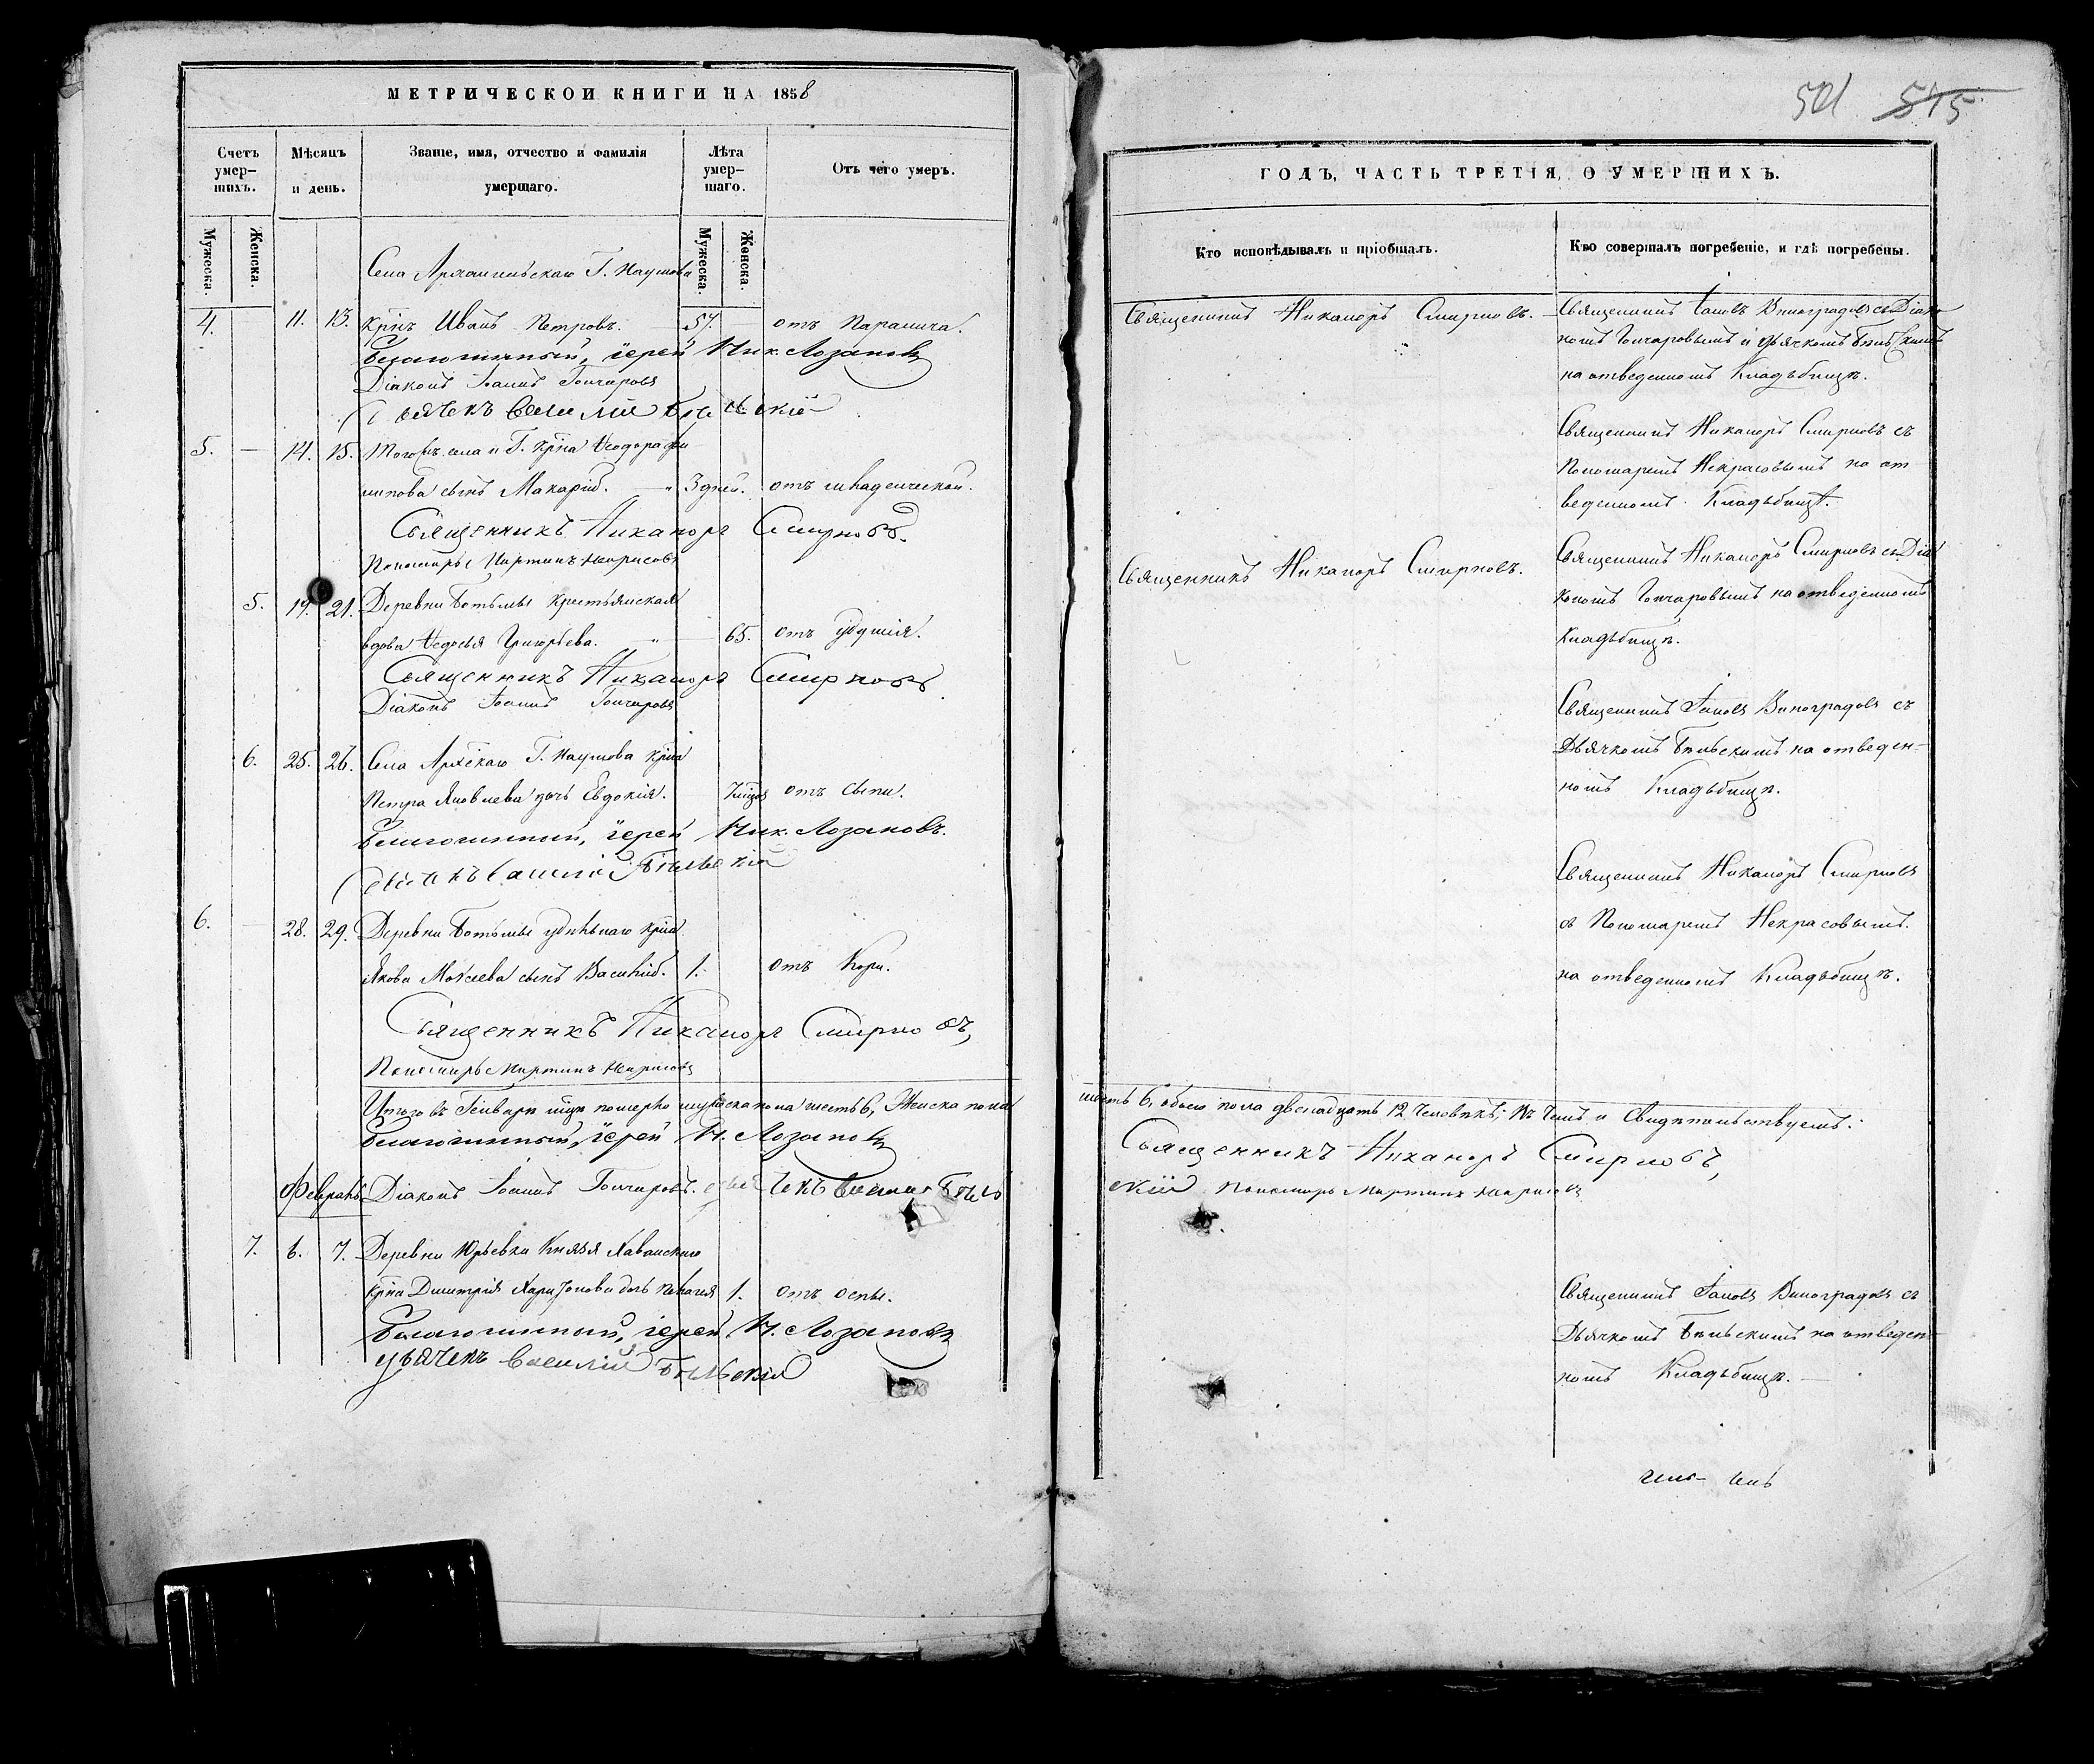 МЕТРИЧЕСКОИ КНИГИ НА 1858
Счетъ умер-шихъ.
Мѣсяцъ и день.
Званіе, имя, отчество и фамилія умершаго.
Лѣта умер-шаго.
Отъ чего умеръ.
Мужеска.
Женска.
Мужеска.
Женска.
Села Архангельскаго Г. Наумова
4. 11. 13. крнъ Иванъ Петровъ. 57. — отъ Паралича.
Благочинный, іерей Ник. Лозановъ
Діаконъ Іоаннъ Гончаровъ
Дьячекъ Василій Бѣльскій
5. — 14. 15. Тогожъ села и Г. крна Ѳеодора Фи
липова сынъ Макарій. — 3 дней. отъ младенческой.
Священникъ Никаноръ Смирновъ.
Пономарь Мартинъ Некрасовъ
5. 19. 21. Деревни Ботьмы крестьянская
вдова Ѳедосья Григорьева. — 65. отъ удушія.
Священникъ Никаноръ Смирновъ
Діаконъ Іоаннъ Гончаровъ
6. 25. 26. Села Архскаго Г. Наумова крна
Петра Яковлева дочь Евдокія. отъ сыпи.
Благочинный, іерей Ник. Лозановъ.
Дьячекъ Василій Бѣльскій
6. — 28. 29. Деревни Ботьмы удѣльнаго крна
Якова Моѵсеева сынъ Василій. 1. отъ Кори.
Священникъ Никаноръ Смирновъ,
Пономарь Мартинъ Некрасовъ
Итого въ Генварѣ мцѣ померло мужеска пола шесть 6, Женска пола
Благочинный, іерей Н. Лозановъ
Февраль Діаконъ Іоаннъ Гончаровъ. Дьячекъ Василій Бѣль
7. 6. 7. Деревни Юрьевки Князя Хаванскаго
крна Димитрія Харитонова дочь Пелагея 1. отъ оспы.
Благочинный, іерей Н. Лозановъ
Дьячекъ Василій Бѣльскій
501 515
ГОДЪ, ЧАСТЬ ТРЕТІЯ, О УМЕРШИХЪ.
Кто исповѣдывалъ и пріобщалъ.
Кто совершалъ погребеніе, и гдѣ погребены.
Священникъ Никаноръ Смирновъ. —
Священникъ Іаковъ Виноградовъ съ Діако
номъ Гончаровымъ и Дьячкомъ Бѣльскимъ
на отведенномъ Кладьбищѣ.
Священникъ Никаноръ Смирновъ съ
Пономаремъ Некрасовымъ на от
веденномъ Кладьбищѣ.
Священникъ Никаноръ Смирновъ.
Священникъ Никаноръ Смирновъ съ Діа
кономъ Гончаровымъ на отведенномъ
Кладьбищѣ.
Священникъ Іаковъ Виноградовъ съ
Дьячкомъ Бѣльскимъ на отведен-
номъ Кладьбищѣ.
Священникъ Никаноръ Смирновъ
съ Пономаремъ Некрасовымъ.
на отведенномъ Кладьбищѣ.
шесть 6, обоего пола двенадцать 12 человѣкъ; въ чемъ и свидѣтельствуемъ:
Священникъ Никаноръ Смирновъ,
скій Пономарь Мартинъ Некрасовъ
Священникъ Іаковъ Виноградовъ съ
Дьячкомъ Бѣльскимъ на отведен-
номъ Кладьбищѣ. —